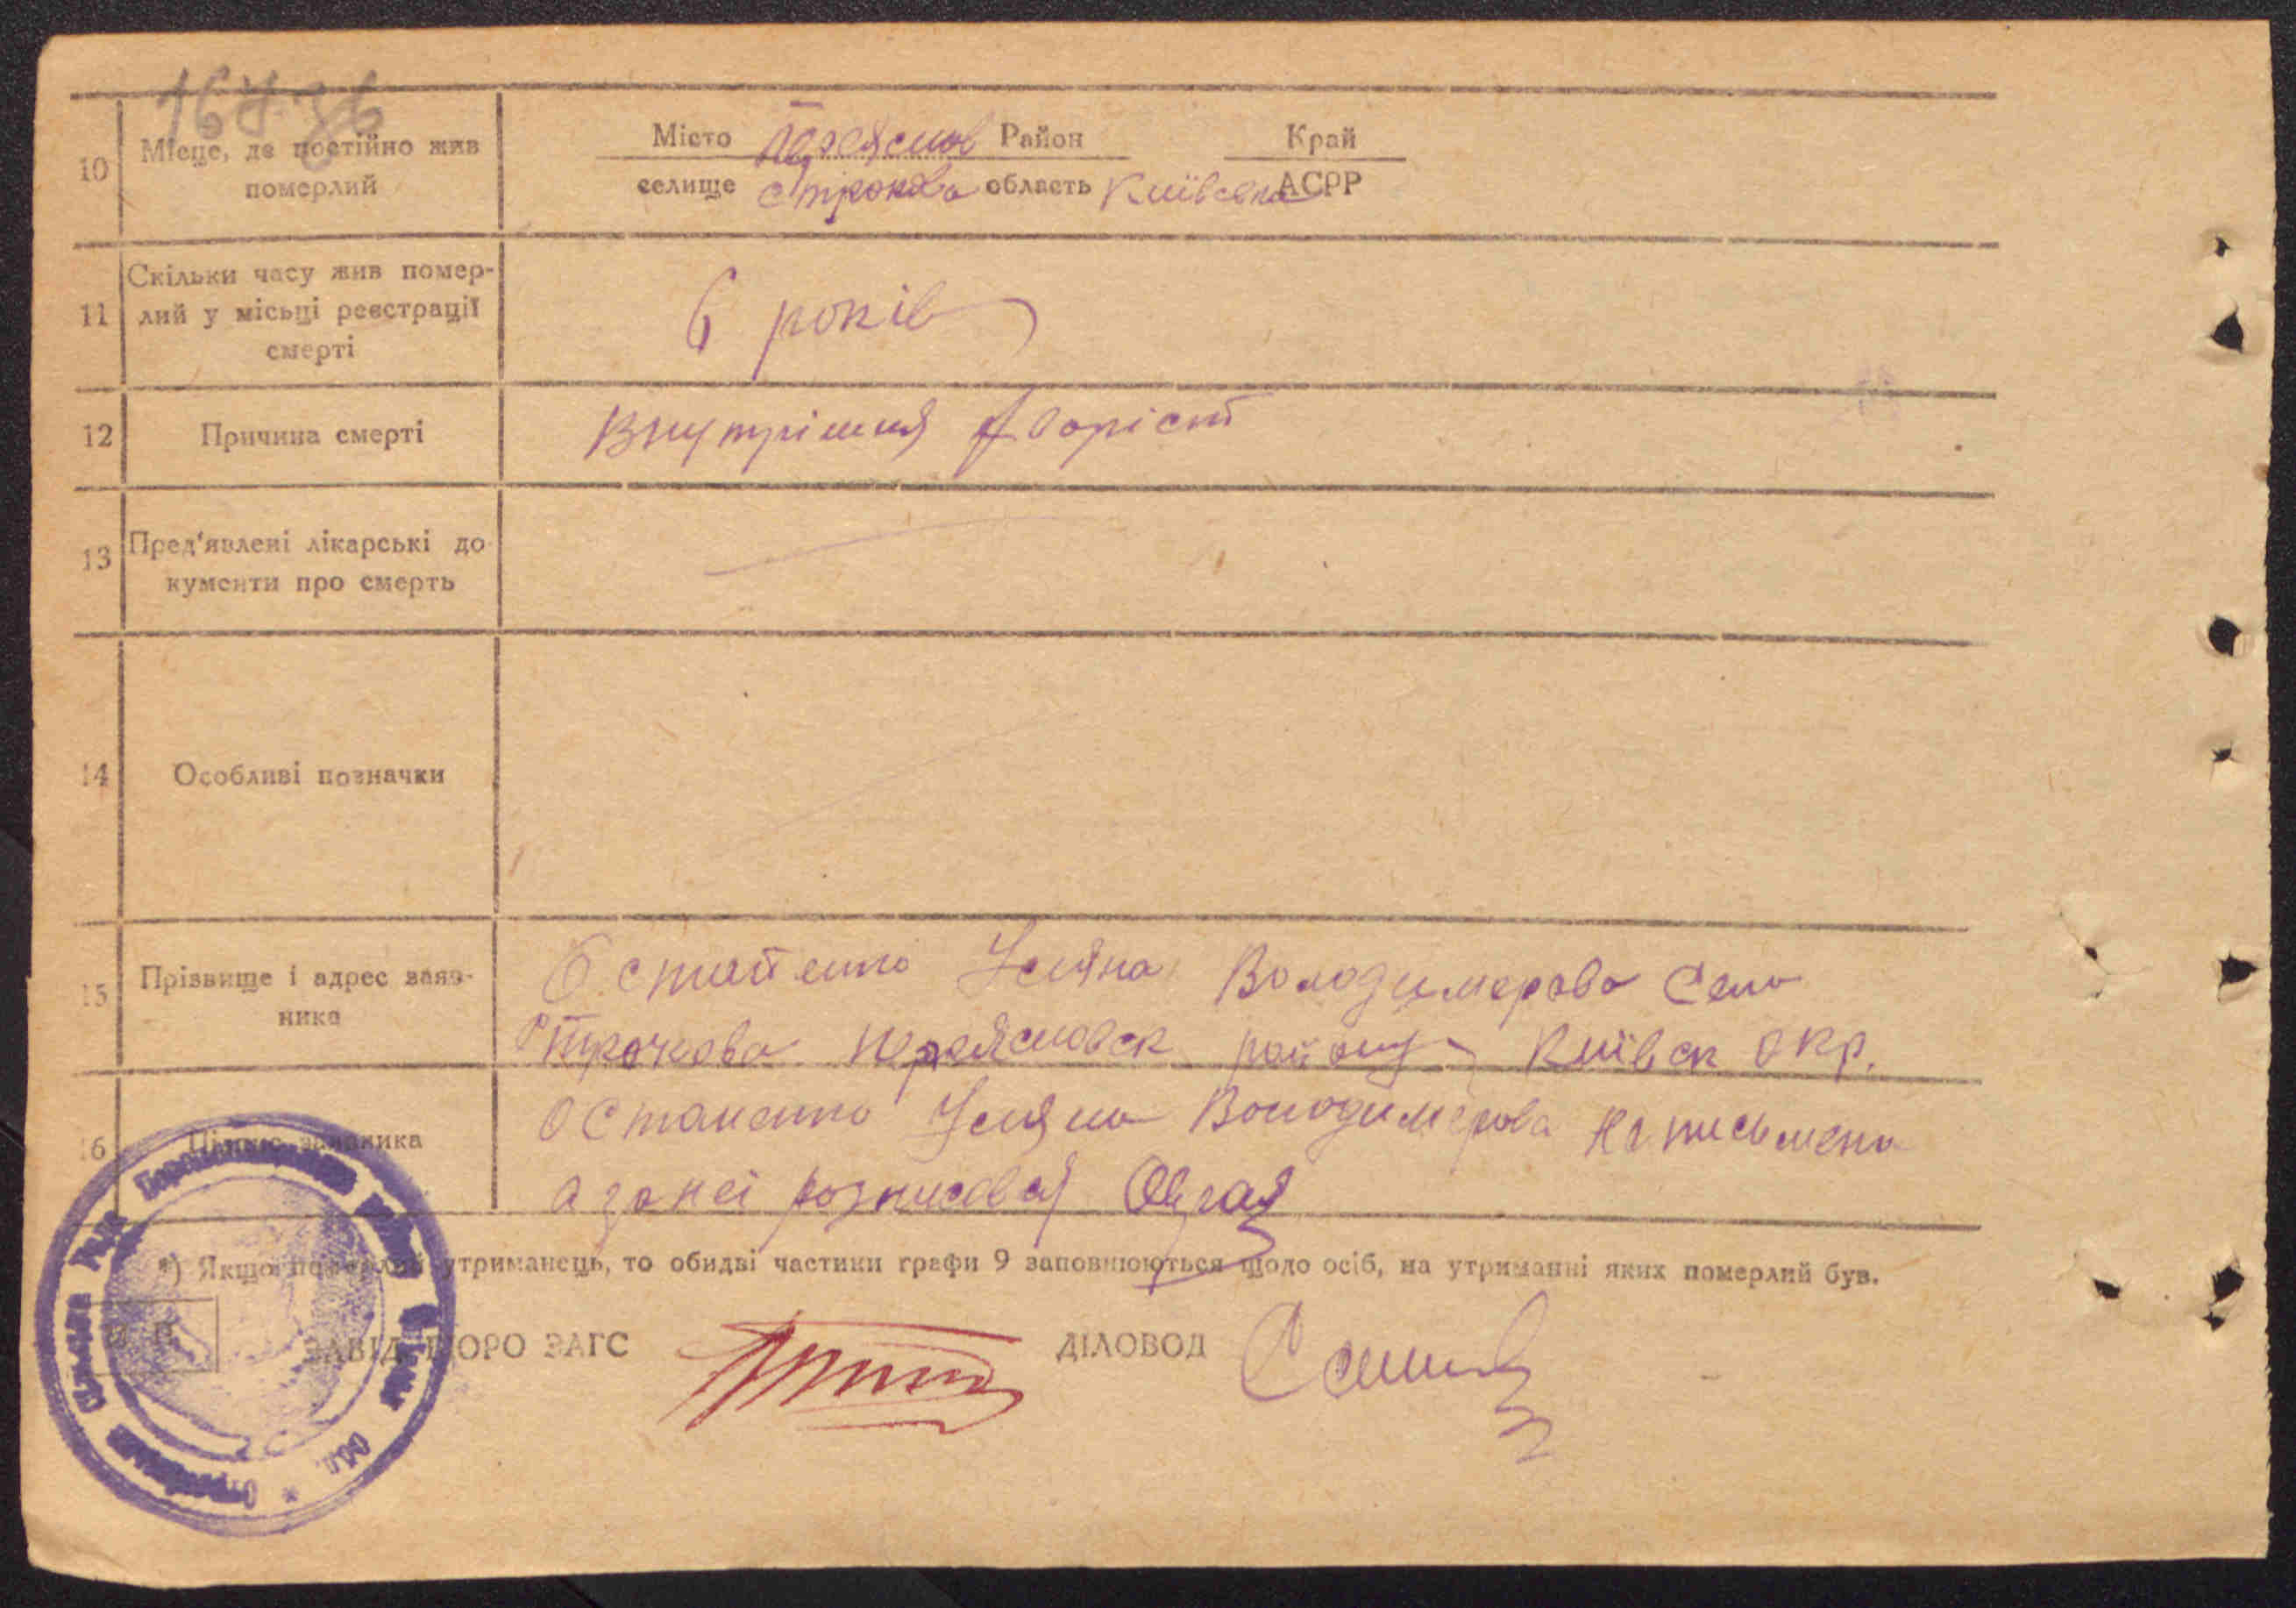 10 Місце, де постійно жив
померлий
Місто Переяслов Район Край
селище Строкова область Київська АСРР
11 Скільки часу жив помер-
лий у місьці реєстрації
смерті
6 років
12 Причина смерті
Внутрішня хворіст
13 Пред'явлені лікарські до
кументи про смерть
14 Особливі позначки
15 Прізвище і адрес заяв-
ника
Остапенко Уляна Володимерова Село
Строкова Переясловск району Київск окр.
16 заявника
Остапенко Уляна Володимерова не письмена
а за неї розписався
*) Якщо померлий утриманець, то обидві частини графи 9 заповнюються щодо осіб, на утриманні яких померлий був.
ЗАВІД. БЮРО ЗАГС ДІЛОВОД
Сільська Рада обл.